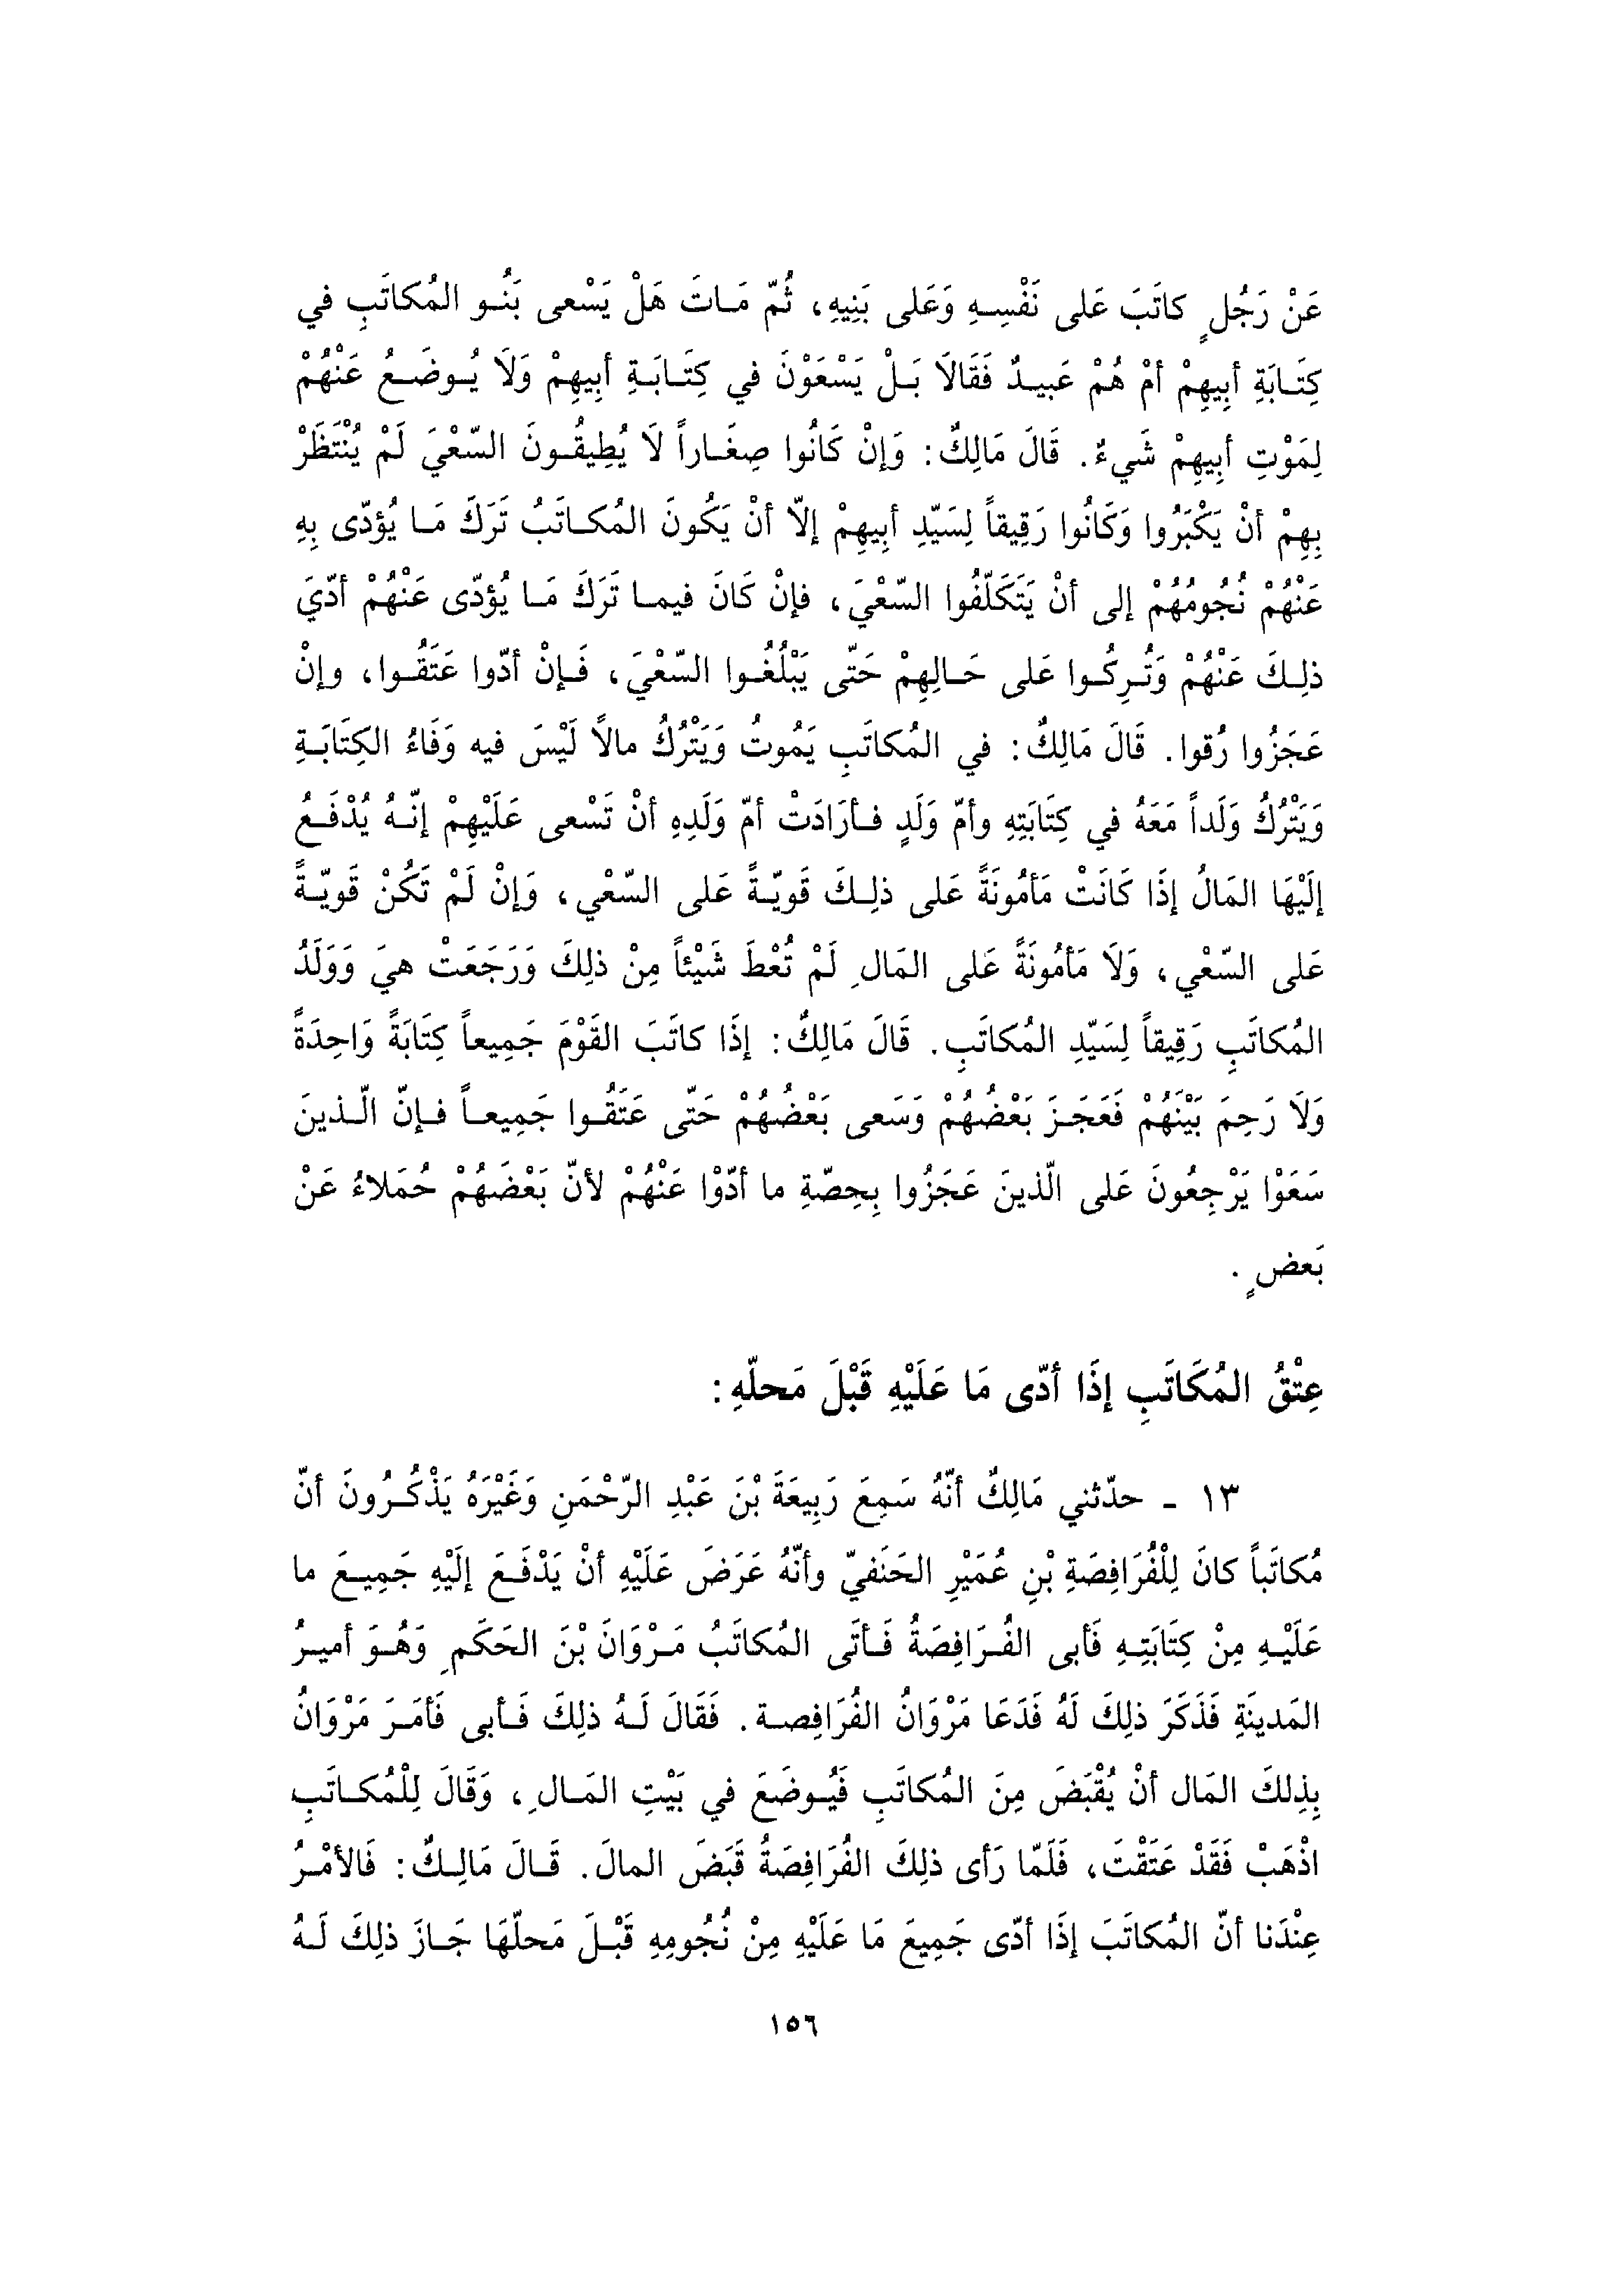 عَنْ رَجُلٍ كاتَبَ عَلى نَفْسِهِ وَعَلى بَنِيهِ، ثُمّ مَاتَ هَلْ يَسْعى بَنُو المُكاتَبِ في
كِتَابَةِ أبِيهِمْ أمْ هُمْ عَبيدٌ فَقَالَا بَلْ يَسْعَوْنَ في كِتَابَةِ أبِيهِمْ وَلَا يُوضَعُ عَنْهُمْ
لِمَوْتِ أبِيهِمْ شَيءٌ. قَالَ مَالِكٌ: وَإنْ كَانُوا صِغَاراً لَا يُطِيقُونَ السّعْيَ لَمْ يُنْتَظَرْ
بِهِمْ أنْ يَكْبَرُوا وَكَانُوا رَقِيقاً لِسَيّدِ أبِيهِمْ إلّا أنْ يَكُونَ المُكاتَبُ تَرَكَ مَا يُؤدّى بِهِ
عَنْهُمْ نُجُومُهُمْ إلى أنْ يَتَكَلّفُوا السّعْيَ، فإنْ كَانَ فيما تَرَكَ مَا يُؤدّى عَنْهُمْ أدّيَ
ذلِكَ عَنْهُمْ وَتُرِكُوا عَلى حَالِهِمْ حَتّى يَبْلُغُوا السّعْيَ، فَإنْ أدّوا عَتَقُوا، وإنْ
عَجَزُوا رُقوا. قَالَ مَالِكٌ: في المُكاتَبِ يَمُوتُ وَيَتْرُكُ مالاً لَيْسَ فيه وَفَاءُ الكِتَابَةِ
وَيَتْرُكُ وَلَداً مَعَهُ في كِتَابَتِهِ وأمّ وَلَدٍ فأرَادَتْ أمّ وَلَدِهِ أنْ تَسْعى عَلَيْهِمْ إنّهُ يُدْفَعُ
إلَيْهَا المَالُ إذَا كَانَتْ مَأمُونَةً عَلى ذلِكَ قَويّةً عَلى السّعْي، وَإنْ لَمْ تَكُنْ قَويّةً
عَلى السّعْي، وَلَا مَأمُونَةً عَلى المَالِ لَمْ تُعْطَ شَيْئاً مِنْ ذلِكَ وَرَجَعَتْ هيَ وَوَلَدُ
المُكاتَبِ رَقِيقاً لِسَيّدِ المُكاتَبِ. قَالَ مَالِكٌ: إذَا كاتَبَ القَوْمَ جَمِيعاً كِتَابَةً وَاحِدَةً
وَلَا رَحِمَ بَيْنَهُمْ فَعَجَزَ بَعْضُهُمْ وَسَعى بَعْضُهُمْ حَتّى عَتَقُوا جَمِيعاً فإنّ الّذينَ
سَعَوْا يَرْجِعُونَ عَلى الّذينَ عَجَزُوا بِحِصّةِ ما أدّوْا عَنْهُمْ لأنّ بَعْضَهُمْ حُمَلاءُ عَنْ
بَعضٍ.
عِتْقُ المُكَاتَبِ إذَا أدّى مَا عَلَيْهِ قَبْلَ مَحلّهِ:
١٣ - حدّثني مَالِكٌ أنّهُ سَمِعَ رَبِيعَةَ بْنَ عَبْدِ الرّحْمَنِ وَغَيْرَهُ يَذْكُرُونَ أنّ
مُكاتَباً كانَ لِلْفُرَافِصَةِ بْنِ عُمَيْرِ الحَنَفيّ وأنّهُ عَرَضَ عَلَيْهِ أنْ يَدْفَعَ إلَيْهِ جَمِيعَ ما
عَلَيْهِ مِنْ كِتَابَتِهِ فَأبى الفُرَافِصَةُ فَأتَى المُكاتَبُ مَرْوَانَ بْنَ الحَكَمِ وَهُوَ أميرُ
المَدينَةِ فَذَكَرَ ذلِكَ لَهُ فَدَعَا مَرْوَانُ الفُرَافِصة. فَقَالَ لَهُ ذلِكَ فَأبى فَأمَرَ مَرْوَانُ
بِذلِكَ المَال أنْ يُقْبَضَ مِنَ المُكاتَبِ فَيُوضَعَ في بَيْتِ المَالِ، وَقَالَ لِلْمُكاتَبِ
اذْهَبْ فَقَدْ عَتَقْتَ، فَلَمّا رَأى ذلِكَ الفُرَافِصَةُ قَبَضَ المالَ. قَالَ مَالِكٌ: فَالأمْرُ
عِنْدَنا أنّ المُكاتَبَ إذَا أدّى جَمِيعَ مَا عَلَيْهِ مِنْ نُجُومِهِ قَبْلَ مَحلّهَا جَازَ ذلِكَ لَهُ
١٥٦